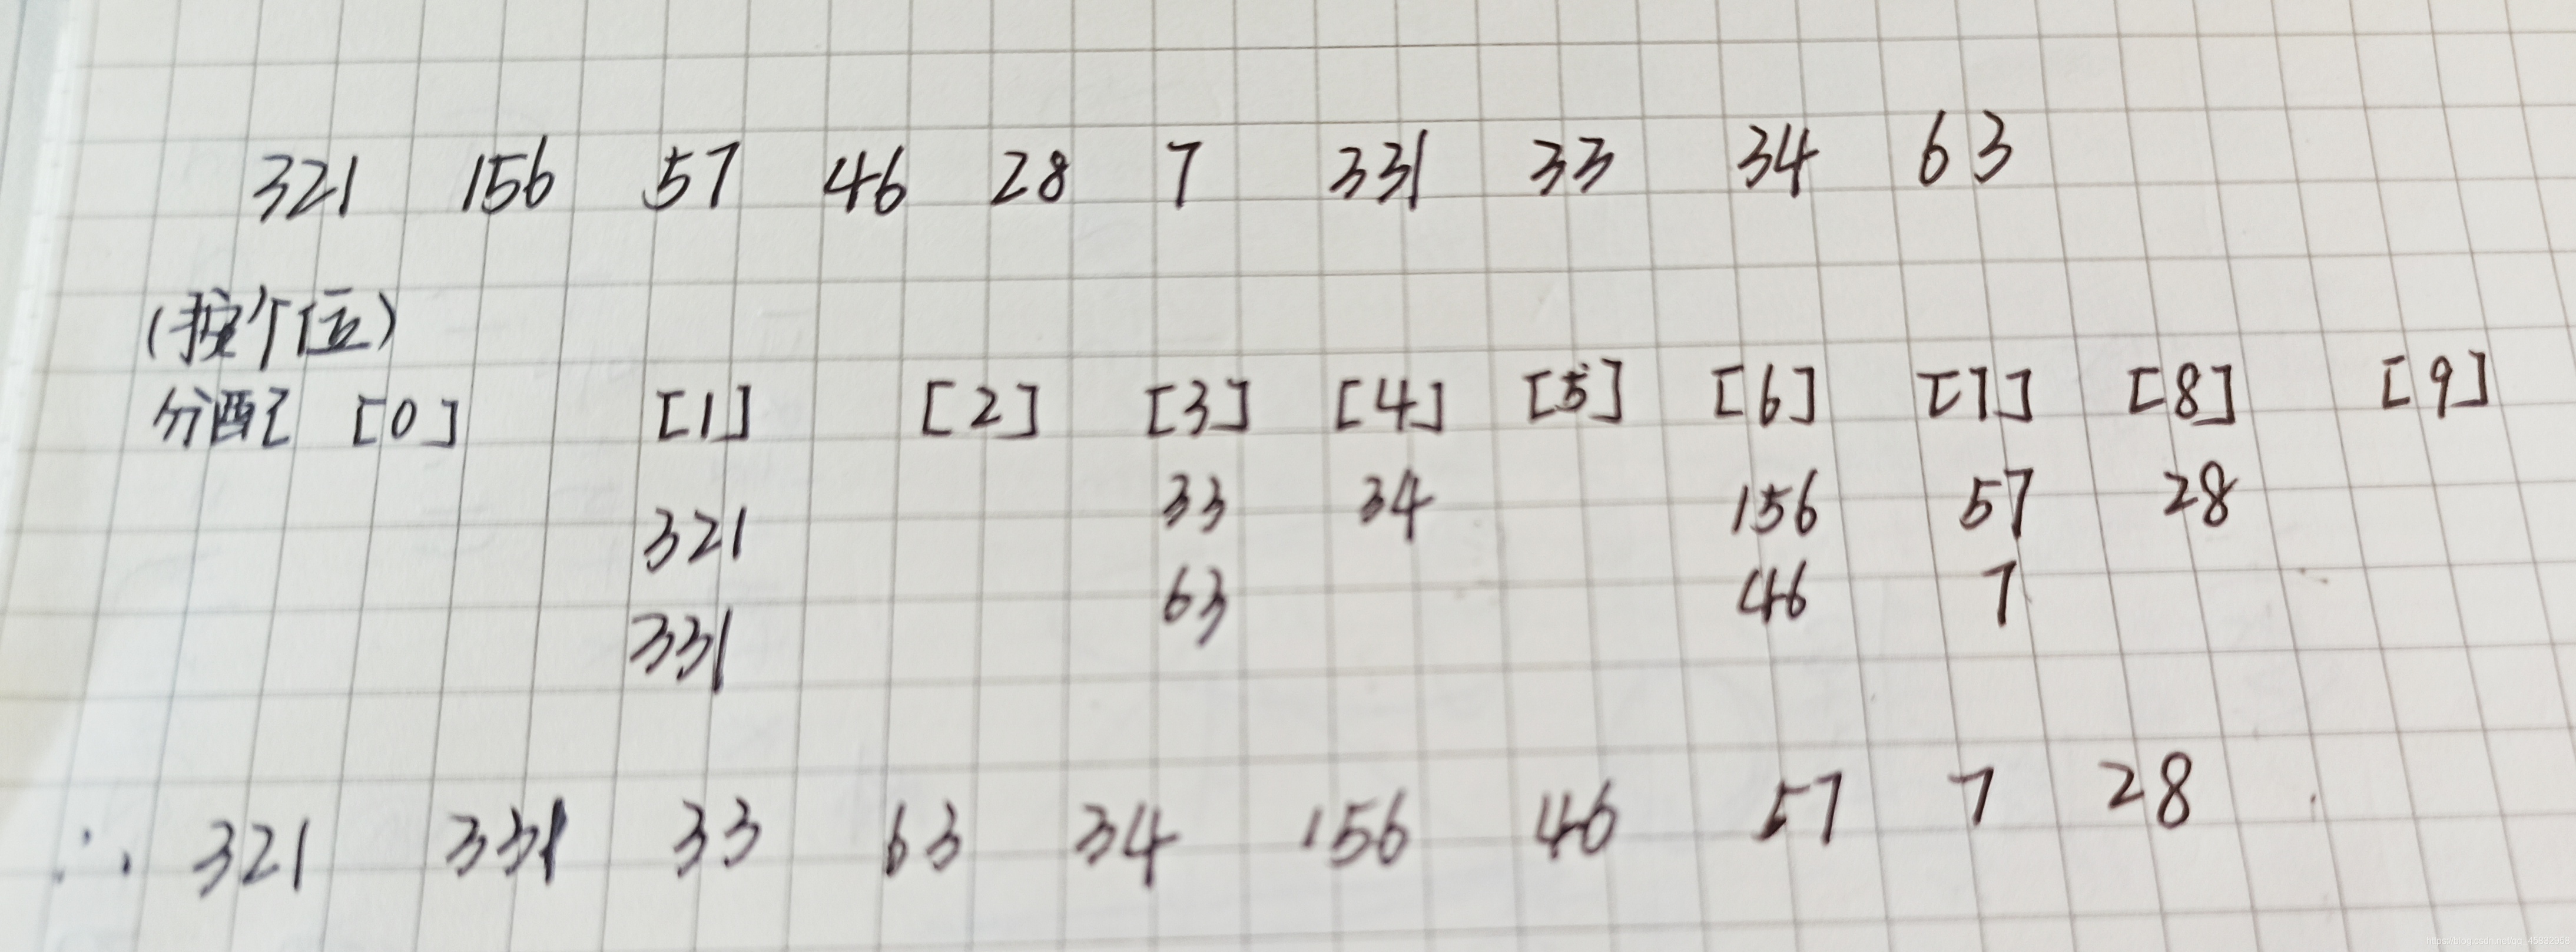 321 156 57 46 28 7 331 33 34 63
(按个位)
分配 [0] [1] [2] [3] [4] [5] [6] [7] [8] [9]
321 33 34 156 57 28
331 63 46 7
∴ 321 331 33 63 34 156 46 57 7 28